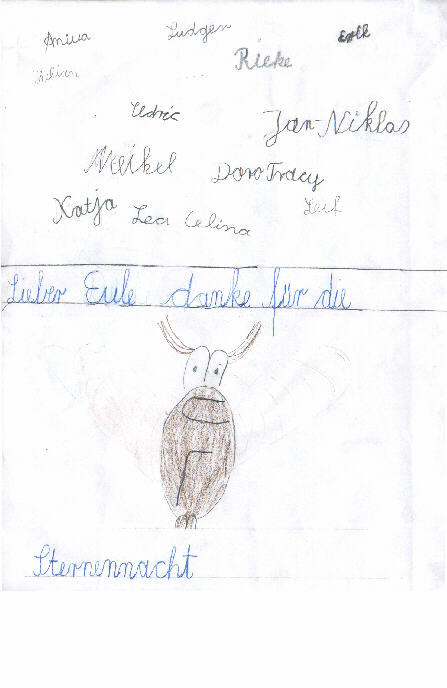 Ludgen Erik
Rieke
Jan-Niklas
Meikel DoroTracy
Katja Lea Celina Leif
Lieber Eule danke für die
Sternennacht